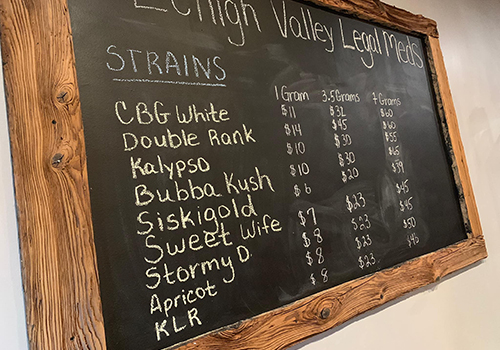 Lehigh Valley Legal Meds
STRAINS
1 Gram 3.5 Grams 7 Grams
CBG White $11 $32 $60
Double Rank $14 $45 $60
Kalypso $10 $30 $55
Bubba Kush $10 $30 $65
Siskigold $6 $20 $39
Sweet Wife $7 $23 $45
Stormy D. $8 $23 $45
Apricot $8 $23 $50
KLR $8 $23 $45